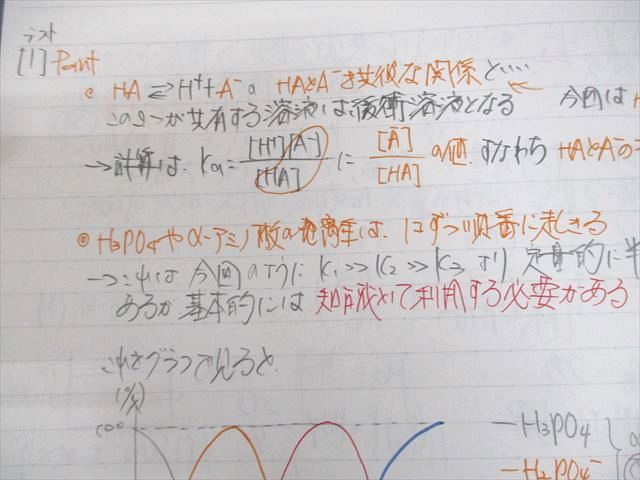 テスト
[1] Point
HA ⇄ H⁺ + A⁻ の HAとA⁻を共役な関係と‥‥
この2つが共有する溶液は緩衝溶液となる 今回は H
→計算は、Ka = [H⁺][A⁻] / [HA] に [A⁻] / [HA] の値、すなわち HAとA⁻の
◎ H₃PO₄やα-アミノ酸の電離は、1コずつ順番に起きる
→これは 今回のように K₁ >> K₂ >> K₃ より 定量的に半
あるが 基本的には 知識として利用する必要がある
これをグラフで見ると、
(%)
100
— H₃PO₄
— H₂PO₄⁻